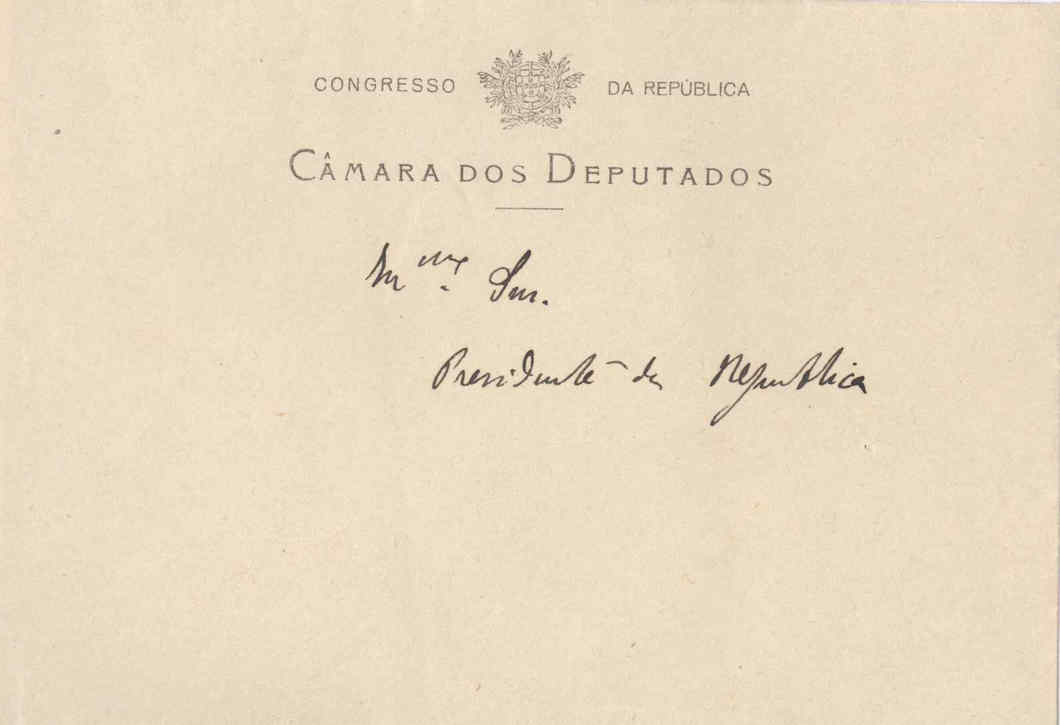 CONGRESSO DA REPÚBLICA
CÂMARA DOS DEPUTADOS
Snr.
Presidente da Republica